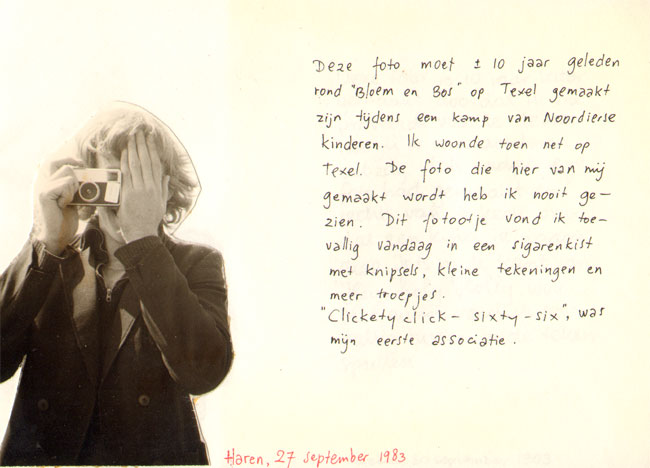 Deze foto, moet ± 10 jaar geleden
rond "Bloem en Bos" op Texel gemaakt
zijn tijdens een kamp van Noordierse
kinderen. Ik woonde toen net op
Texel. De foto die hier van mij
gemaakt wordt heb ik nooit ge-
zien. Dit fotootje vond ik toe-
vallig vandaag in een sigarenkist
met knipsels, kleine tekeningen en
meer troepjes.
"Clickety click - sixty-six", was
mijn eerste associatie.
Haren, 27 september 1983